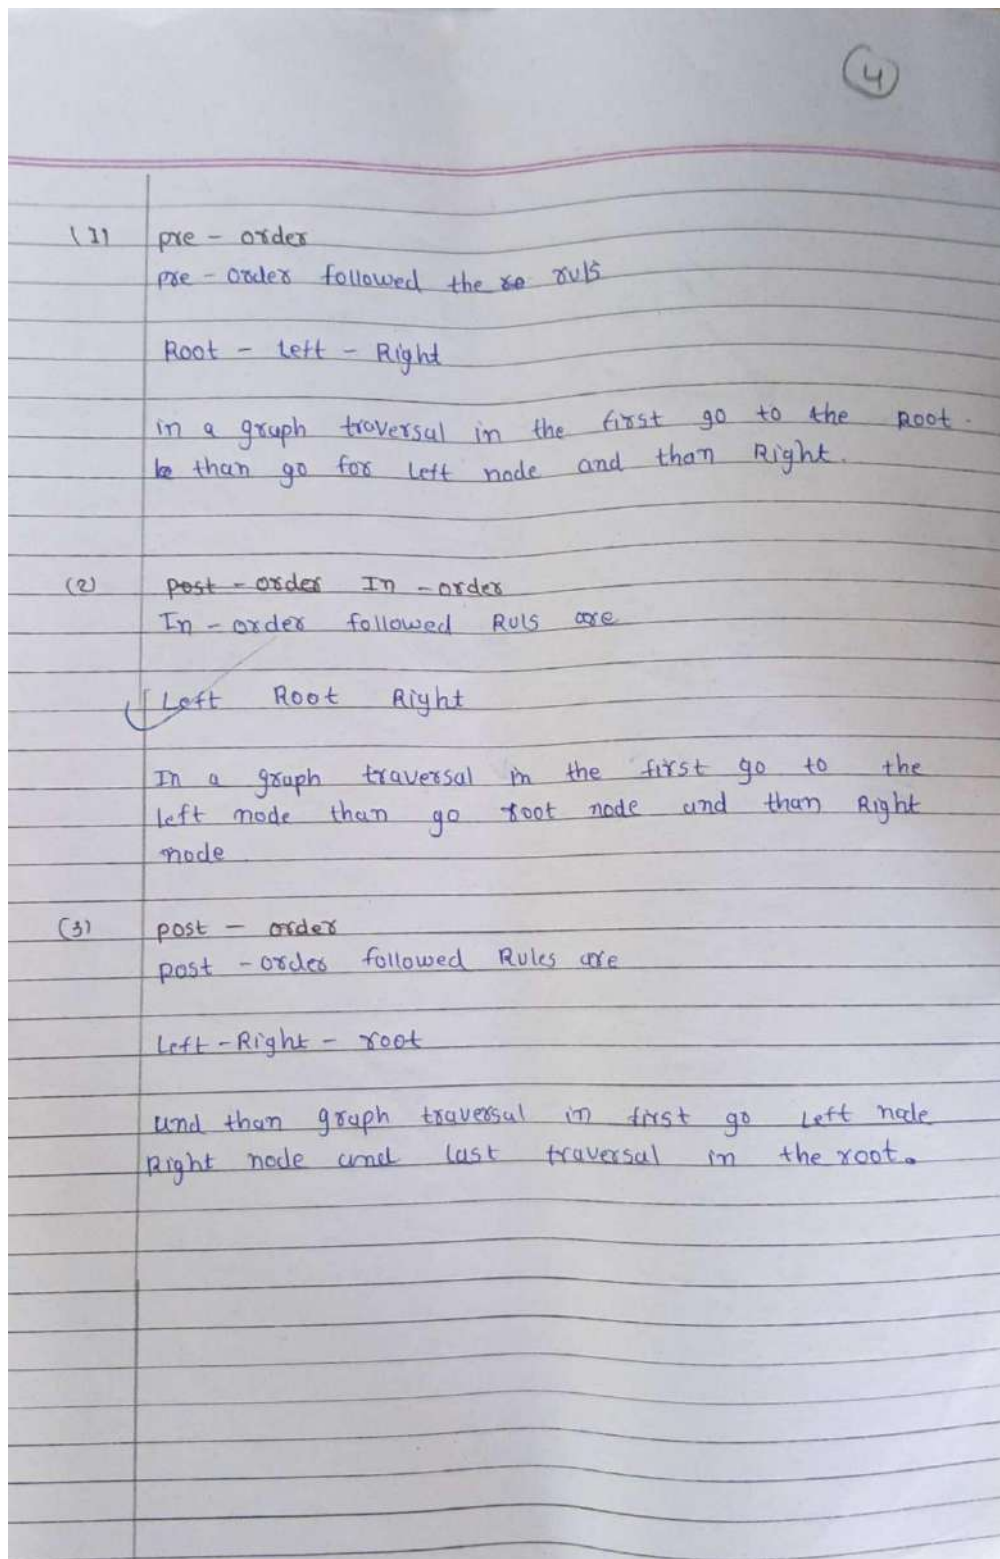 4
(1) pre - order
pre - order followed the ruls
Root - Left - Right
in a graph traversal in the first go to the Root.
than go for left node and than Right.
(2) post - order In - order
In - order followed Ruls are
Left Root Right
In a graph traversal in the first go to the
left node than go root node and than Right
node
(3) post - order
post - order followed Rules are
Left - Right - root
and than graph traversal in first go Left node
Right node and last traversal in the root.